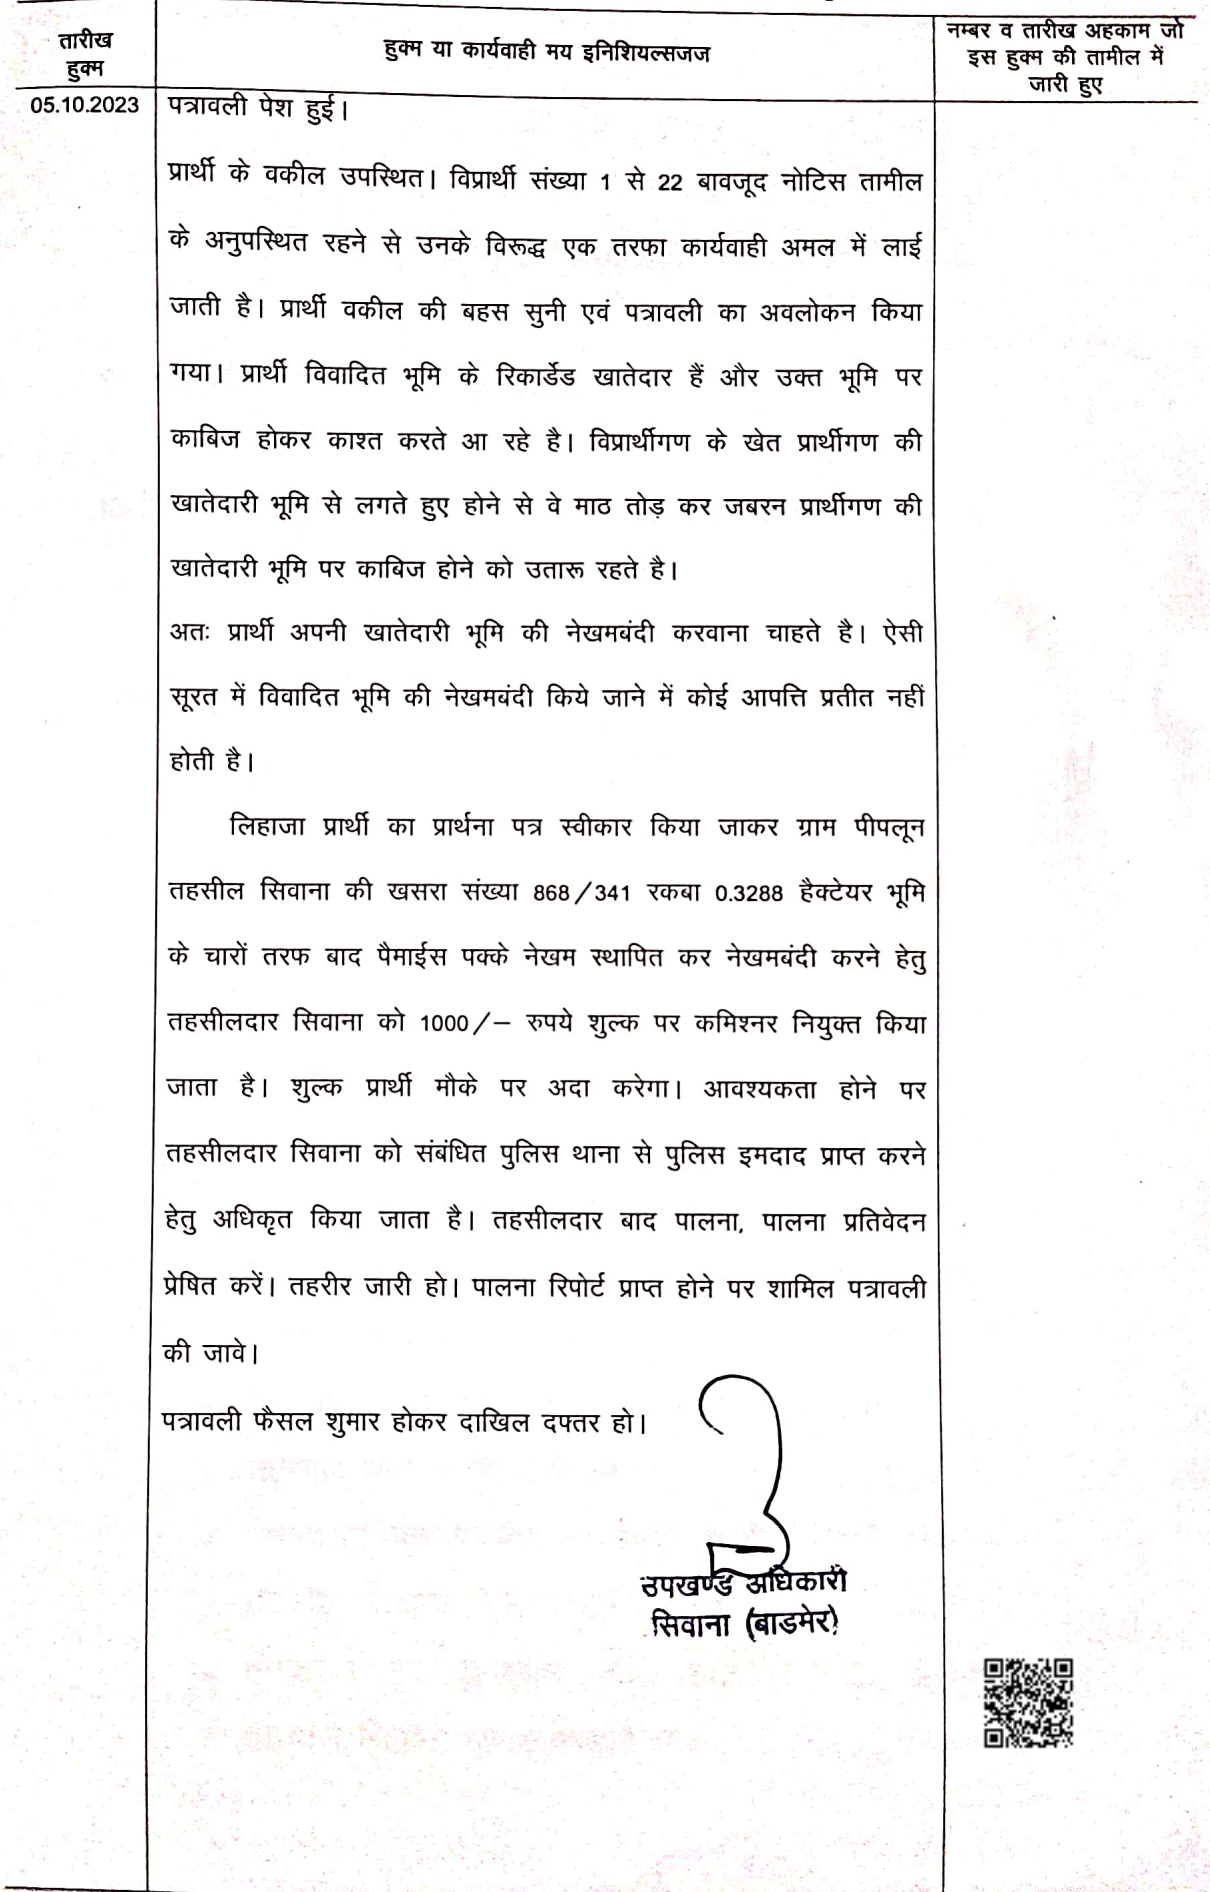 तारीख
हुक्म
हुक्म या कार्यवाही मय इनिशियल्सजज
नम्बर व तारीख अहकाम जो
इस हुक्म की तामील में
जारी हुए
05.10.2023
पत्रावली पेश हुई।
प्रार्थी के वकील उपस्थित। विप्रार्थी संख्या 1 से 22 बावजूद नोटिस तामील
के अनुपस्थित रहने से उनके विरूद्ध एक तरफा कार्यवाही अमल में लाई
जाती है। प्रार्थी वकील की बहस सुनी एवं पत्रावली का अवलोकन किया
गया। प्रार्थी विवादित भूमि के रिकार्डेड खातेदार हैं और उक्त भूमि पर
काबिज होकर काश्त करते आ रहे है। विप्रार्थीगण के खेत प्रार्थीगण की
खातेदारी भूमि से लगते हुए होने से वे माठ तोड़ कर जबरन प्रार्थीगण की
खातेदारी भूमि पर काबिज होने को उतारू रहते है।
अतः प्रार्थी अपनी खातेदारी भूमि की नेखमबंदी करवाना चाहते है। ऐसी
सूरत में विवादित भूमि की नेखमबंदी किये जाने में कोई आपत्ति प्रतीत नहीं
होती है।
लिहाजा प्रार्थी का प्रार्थना पत्र स्वीकार किया जाकर ग्राम पीपलून
तहसील सिवाना की खसरा संख्या 868/341 रकबा 0.3288 हैक्टेयर भूमि
के चारों तरफ बाद पैमाईस पक्के नेखम स्थापित कर नेखमबंदी करने हेतु
तहसीलदार सिवाना को 1000/- रुपये शुल्क पर कमिश्नर नियुक्त किया
जाता है। शुल्क प्रार्थी मौके पर अदा करेगा। आवश्यकता होने पर
तहसीलदार सिवाना को संबंधित पुलिस थाना से पुलिस इमदाद प्राप्त करने
हेतु अधिकृत किया जाता है। तहसीलदार बाद पालना, पालना प्रतिवेदन
प्रेषित करें। तहरीर जारी हो। पालना रिपोर्ट प्राप्त होने पर शामिल पत्रावली
की जावे।
पत्रावली फैसल शुमार होकर दाखिल दफ्तर हो।
उपखण्ड अधिकारी
सिवाना (बाडमेर)